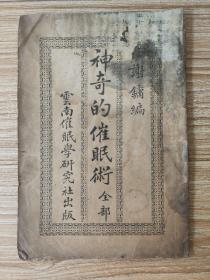 謝鏞編
神奇的催眠術 全部
雲南催眠學研究社出版